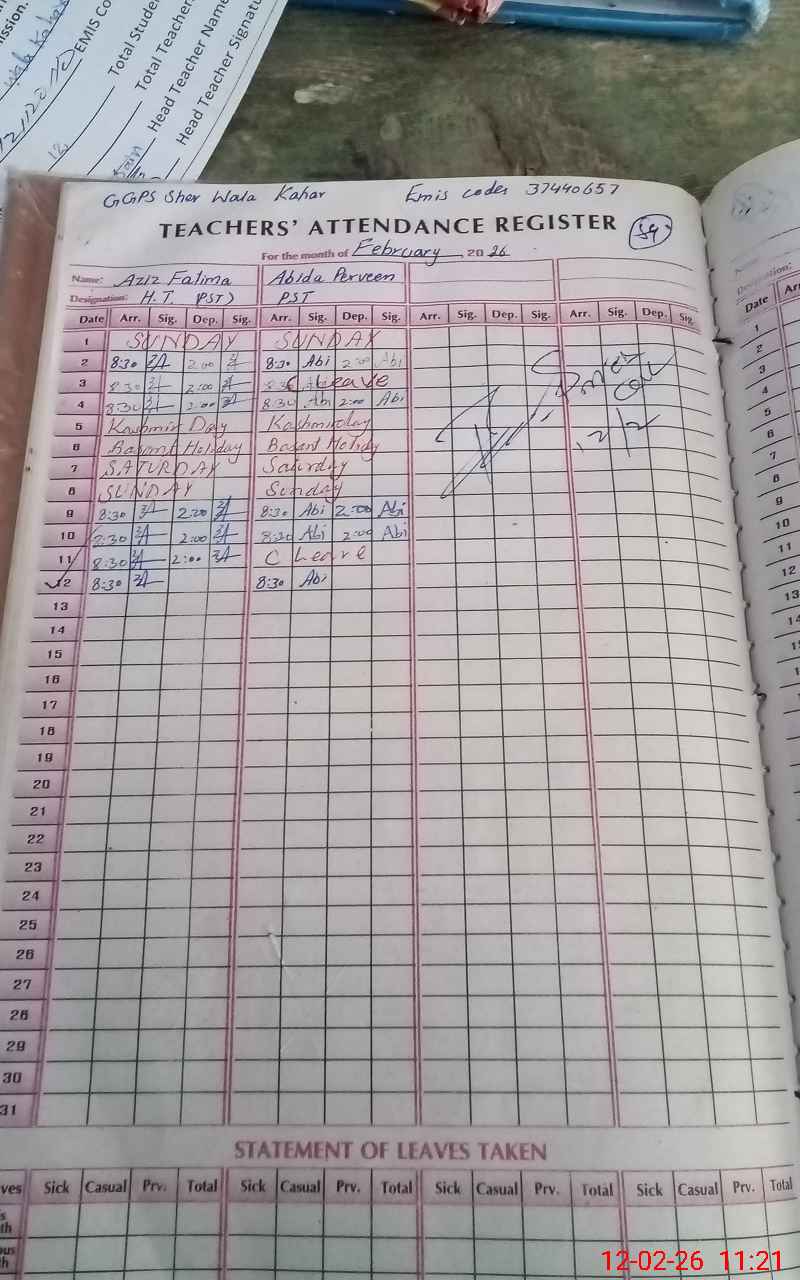 ission.
wala Kahar
EMIS Co
Total Stude
Total Teachers
Head Teacher Name
Head Teacher Signatu
GGPS Sher Wala Kahar Emis codes 37440657
TEACHERS' ATTENDANCE REGISTER 59
For the month of February, 2026
Name: Aziz Fatima Abida Perveen
Designation: H.T. (PST) PST
Date Arr. Sig. Dep. Sig. Arr. Sig. Dep. Sig. Arr. Sig. Dep. Sig. Arr. Sig. Dep. Sig.
1 SUNDAY SUNDAY
2 8:30 2:00 8:30 Abi 2:00 Abi
3 8:30 2:00 Leave
4 8:30 2:00 8:30 Abi 2:00 Abi
5 Kashmir Day Kashmir day
6 Basant Holiday Basant Holiday
7 SATURDAY Saturday
8 SUNDAY Sunday
9 8:30 2:00 8:30 Abi 2:00 Abi
10 8:30 2:00 8:30 Abi 2:00 Abi
11 8:30 2:00 C Leave
12 8:30 8:30 Abi
12/2
13
14
15
16
17
18
19
20
21
22
23
24
25
26
27
28
29
30
31
STATEMENT OF LEAVES TAKEN
ves Sick Casual Prv. Total Sick Casual Prv. Total Sick Casual Prv. Total Sick Casual Prv. Total
Designation:
Date Arr
1
2
3
4
5
6
7
8
9
10
11
12
13
12-02-26 11:21